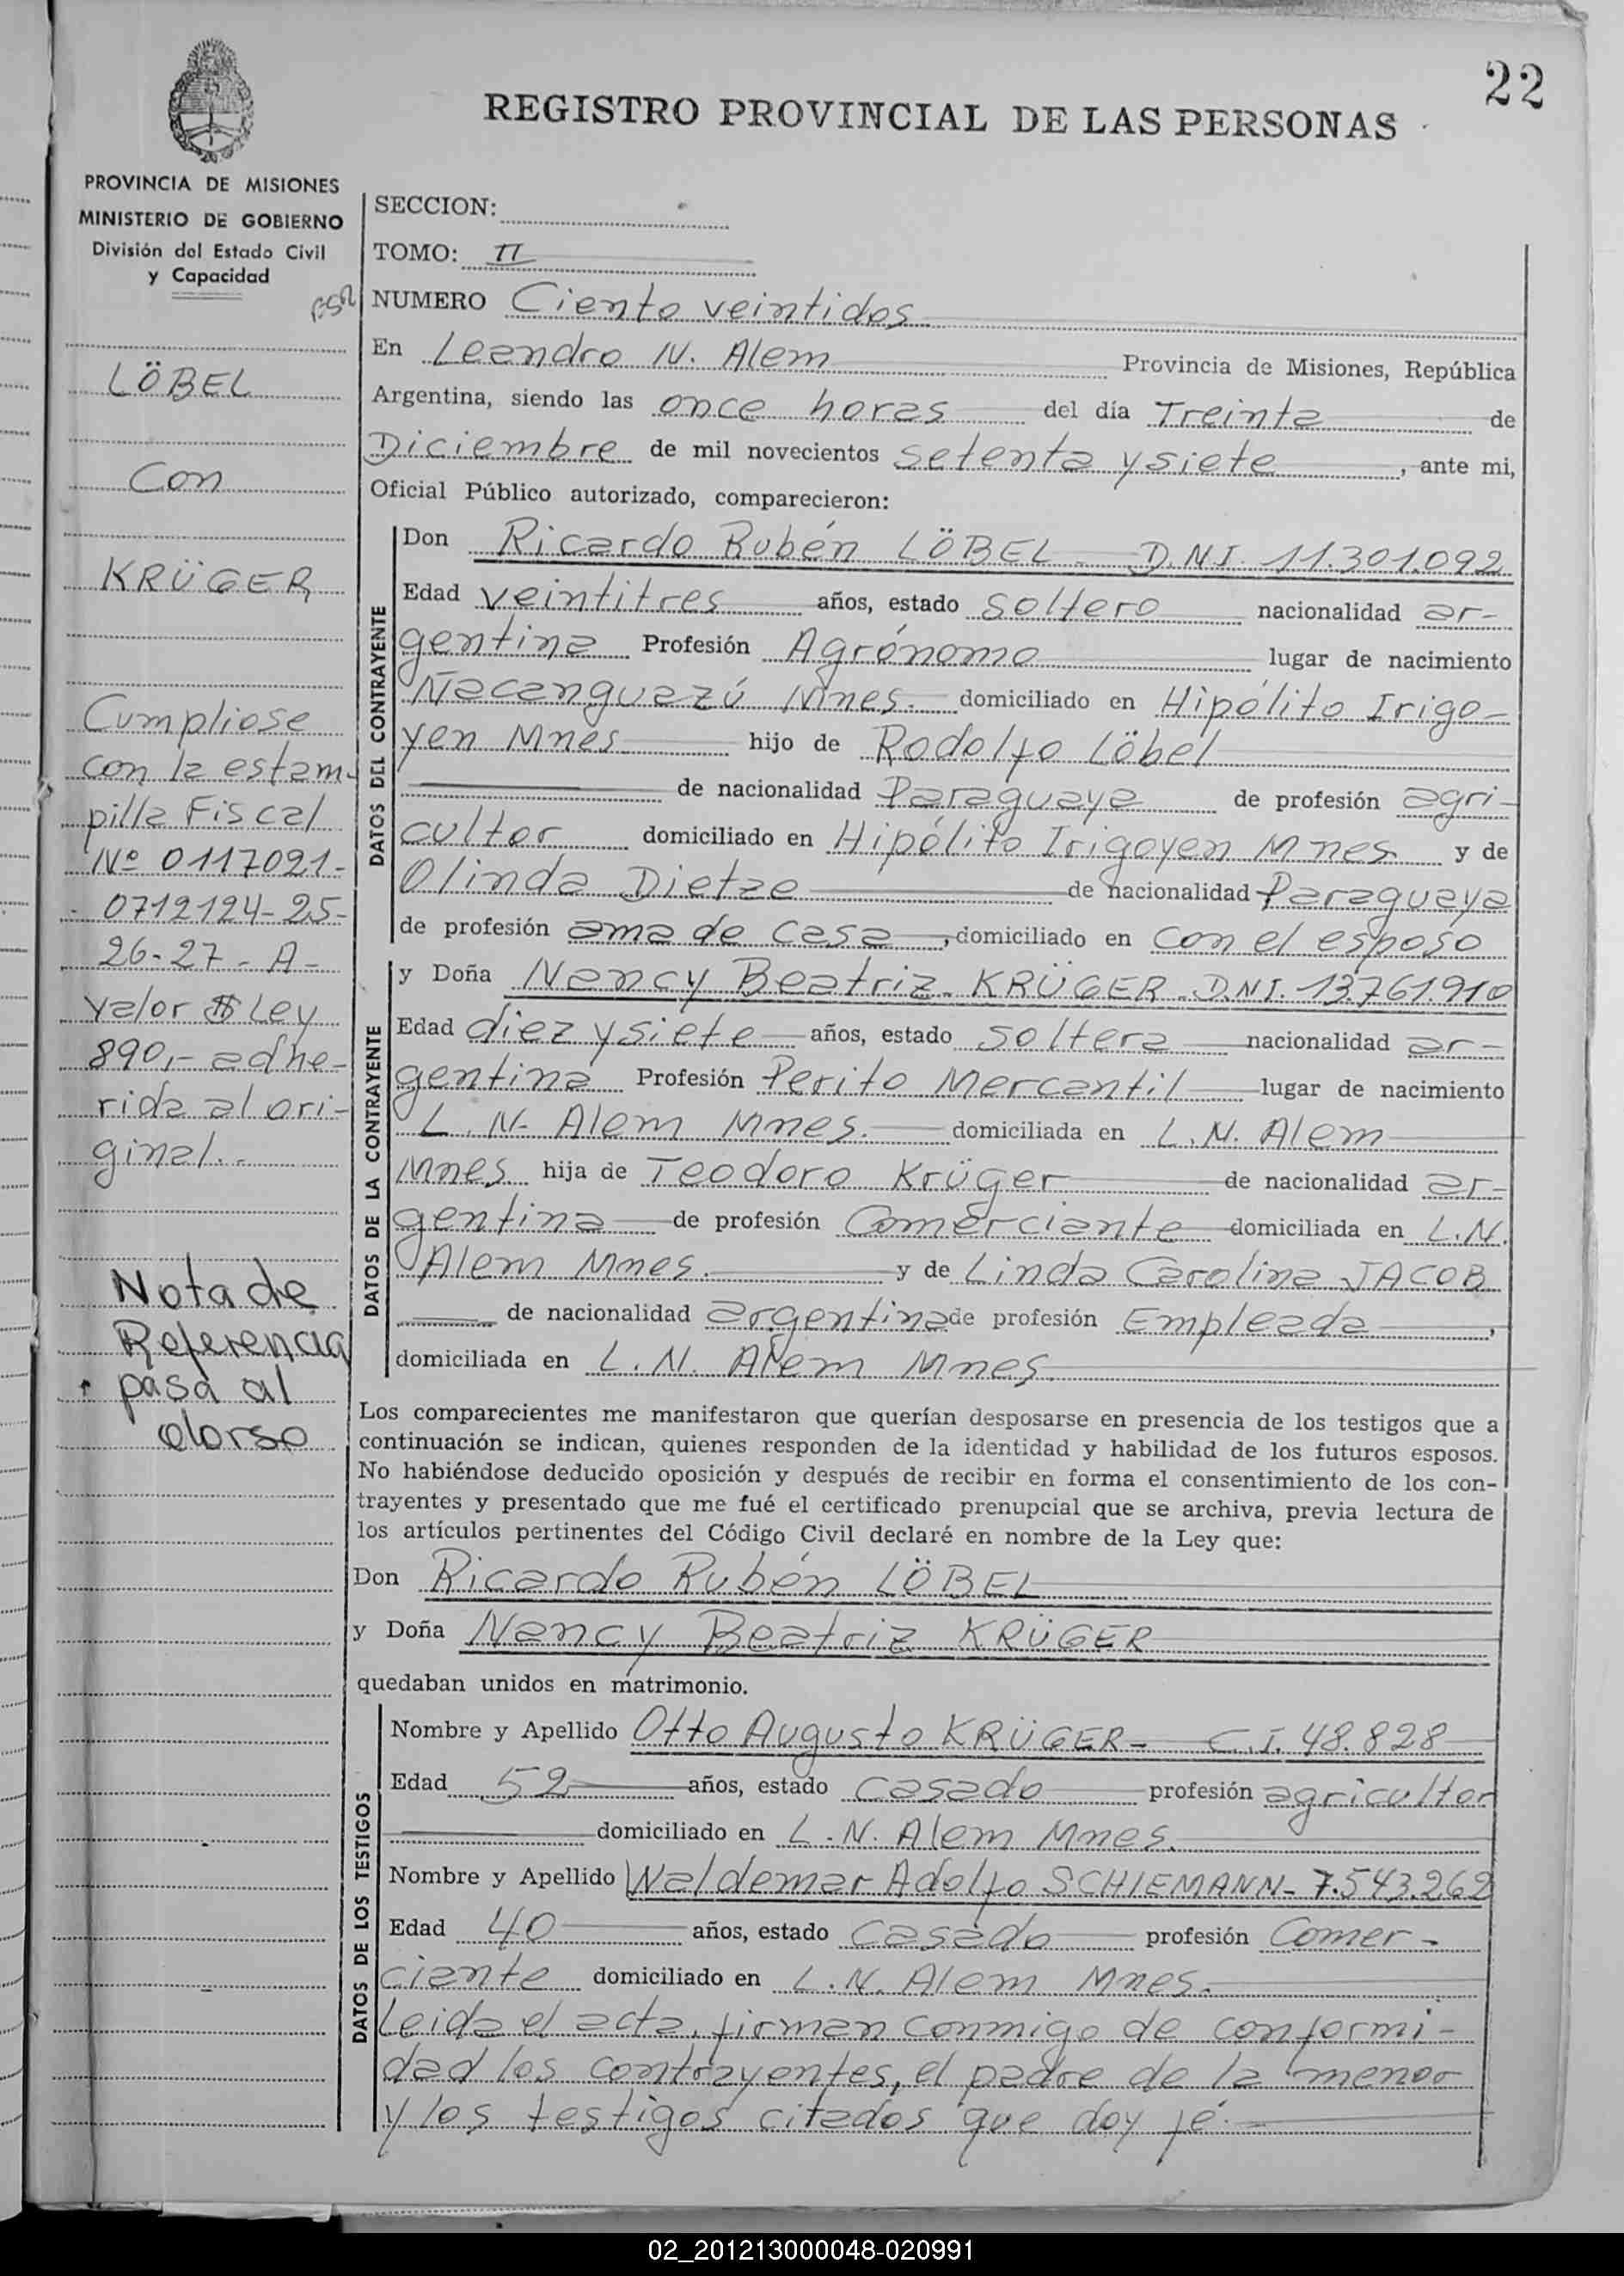 22
REGISTRO PROVINCIAL DE LAS PERSONAS
PROVINCIA DE MISIONES
MINISTERIO DE GOBIERNO
División del Estado Civil
y Capacidad
LÖBEL
Con
KRÜGER
Cumpliose
con la estam-
pilla Fiscal
Nº 0117021-
0712124-25-
26-27-A-
valor $ Ley
890,- adhe-
rida al ori-
ginal.-
Nota de
Referencia
pasa al
dorso
SECCION:
TOMO: II
NUMERO Ciento veintidos
En Leandro N. Alem Provincia de Misiones, República
Argentina, siendo las once horas del día Treinta de
Diciembre de mil novecientos setenta y siete, ante mi,
Oficial Público autorizado, comparecieron:
DATOS DEL CONTRAYENTE
Don Ricardo Rubén LÖBEL - D.N.I. 11.301.092
Edad veintitres años, estado soltero nacionalidad ar-
gentina Profesión Agrónomo lugar de nacimiento
Ñacanguazú Mnes. domiciliado en Hipólito Irigo-
yen Mnes hijo de Rodolfo Löbel
de nacionalidad Paraguaya de profesión agri-
cultor domiciliado en Hipólito Irigoyen Mnes y de
Olinda Dietze de nacionalidad Paraguaya
de profesión ama de casa, domiciliado en con el esposo
DATOS DE LA CONTRAYENTE
y Doña Nancy Beatriz - KRÜGER - D.N.I. 13.761.910
Edad diez y siete años, estado soltera nacionalidad ar-
gentina Profesión Perito Mercantil lugar de nacimiento
L. N. Alem Mnes. domiciliada en L. N. Alem
Mnes hija de Teodoro Krüger de nacionalidad ar-
gentina de profesión Comerciante domiciliada en L.N.
Alem Mnes. y de Linda Carolina JACOB
de nacionalidad argentina de profesión Empleada,
domiciliada en L. N. Alem Mnes.
Los comparecientes me manifestaron que querían desposarse en presencia de los testigos que a
continuación se indican, quienes responden de la identidad y habilidad de los futuros esposos.
No habiéndose deducido oposición y después de recibir en forma el consentimiento de los con-
trayentes y presentado que me fué el certificado prenupcial que se archiva, previa lectura de
los artículos pertinentes del Código Civil declaré en nombre de la Ley que:
Don Ricardo Rubén LÖBEL
y Doña Nancy Beatriz KRÜGER
quedaban unidos en matrimonio.
DATOS DE LOS TESTIGOS
Nombre y Apellido Otto Augusto KRÜGER - C.I. 48.828
Edad 52 años, estado casado profesión agricultor
domiciliado en L. N. Alem Mnes.
Nombre y Apellido Waldemar Adolfo SCHIEMANN - 7.543.262
Edad 40 años, estado casado profesión Comer-
ciante domiciliado en L. N. Alem Mnes.
Leida el acta, firman conmigo de conformi-
dad los contrayentes, el padre de la menor
y los testigos citados que doy fé.
02_201213000048-020991